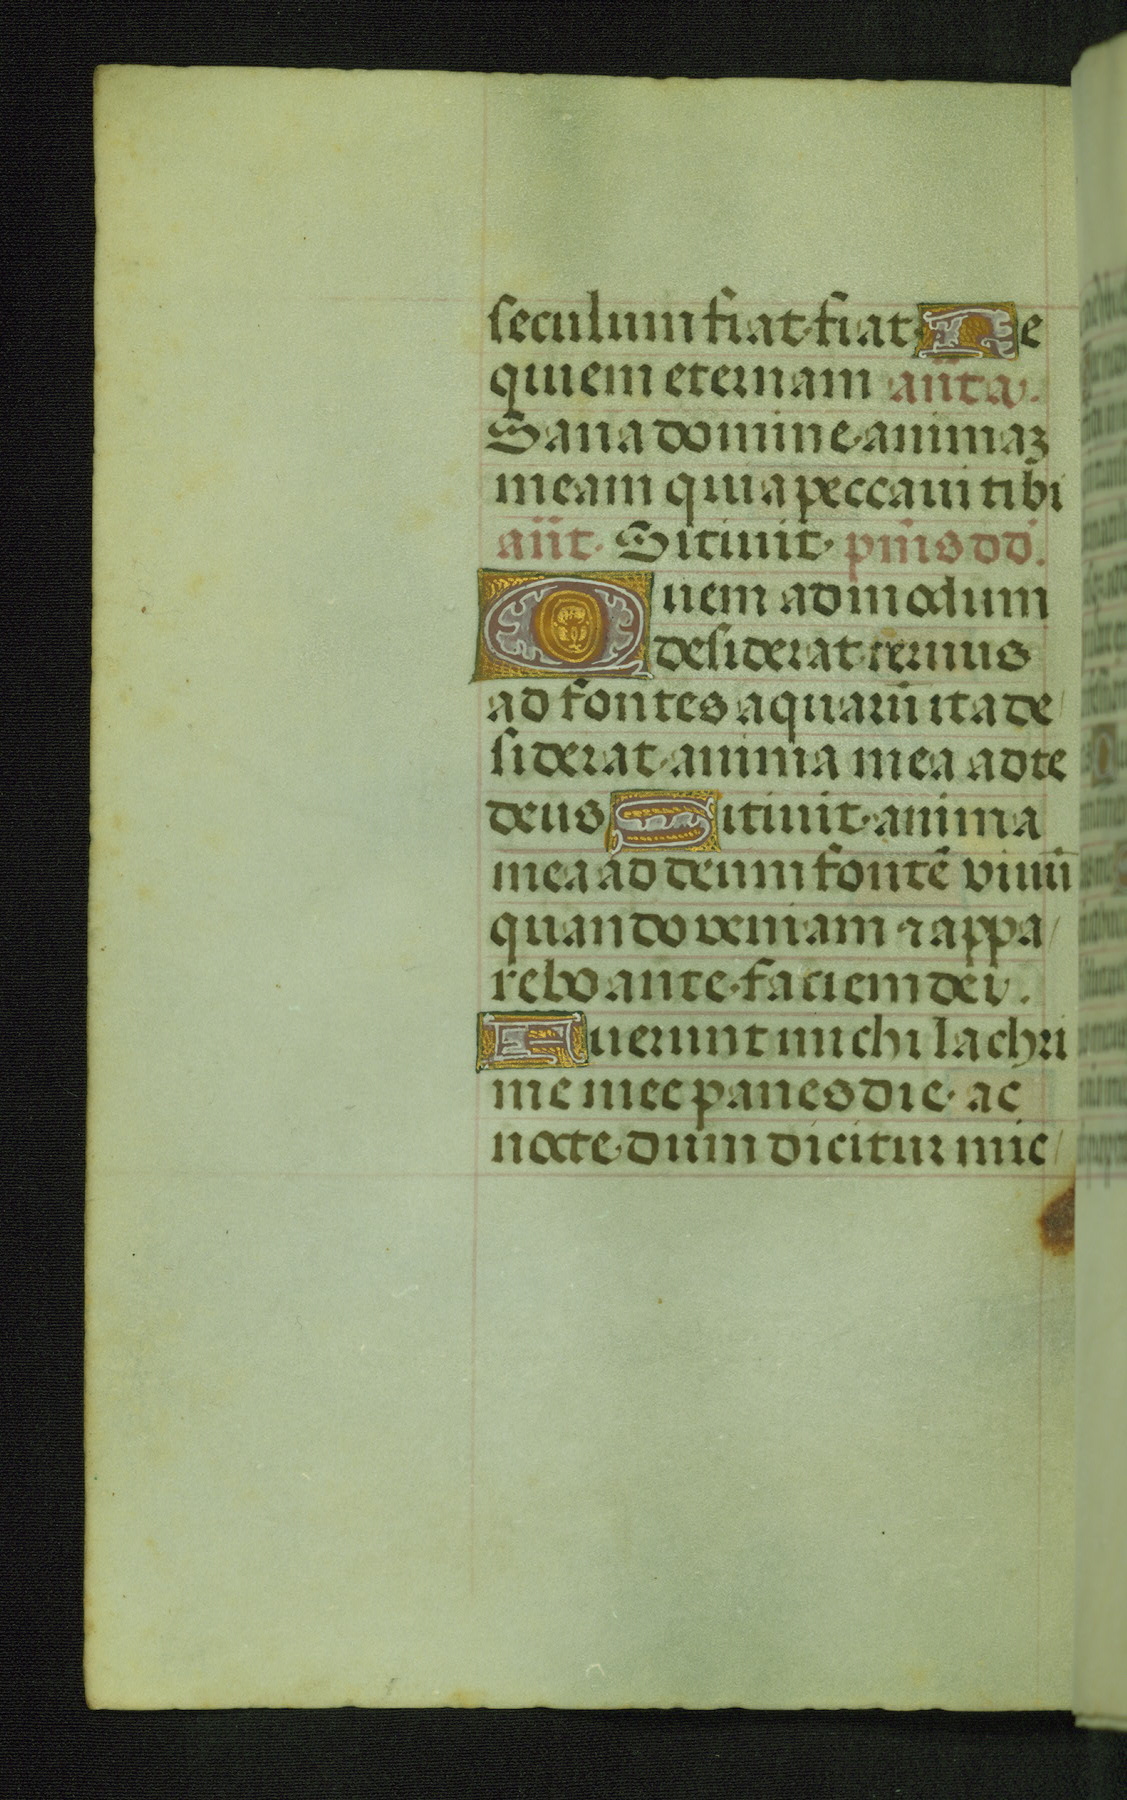 seculum fiat fiat Re
quiem eternam an̄ta.
Sana domine animaȝ
meam quia peccaui tibi
an̄t. Sitiuit. pm̄s dd̄.
Quem admodum
desiderat ceruus
ad fontes aquarū ita de
siderat anima mea ad te
deus Sitiuit anima
mea ad deum fontē viuū
quando veniam ⁊ appa
rebo ante faciem dei.
Fuerunt michi lachri
me mee panes die ac
nocte dum dicitur mic